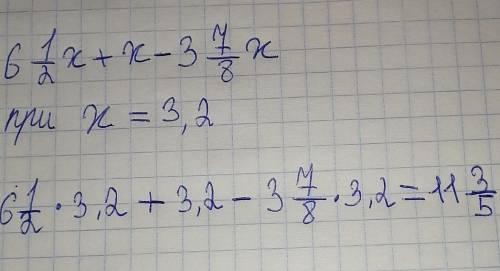 6 1/2 x + x - 3 7/8 x
при x = 3,2
6 1/2 · 3,2 + 3,2 - 3 7/8 · 3,2 = 11 3/5